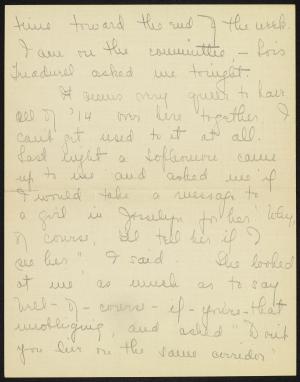 time toward the end of the week.
I am on the committee, – Lois
Treadwell asked me tonight.
It seems very queer to have
all of '14 over here together, I
can't get used to it at all.
Last night a Sophomore came
up to me and asked me "if
I would take a message to
a girl in Josselyn for her". "Why,
of course, I'll tell her if I
see her" I said. She looked
at me as much as to say
well-of-course-if-you're-that
unobliging, and asked "Don't
you live on the same corridor